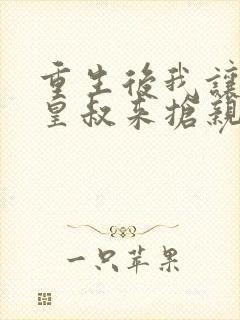 重生後我讓
皇叔來搶親
一只苹果